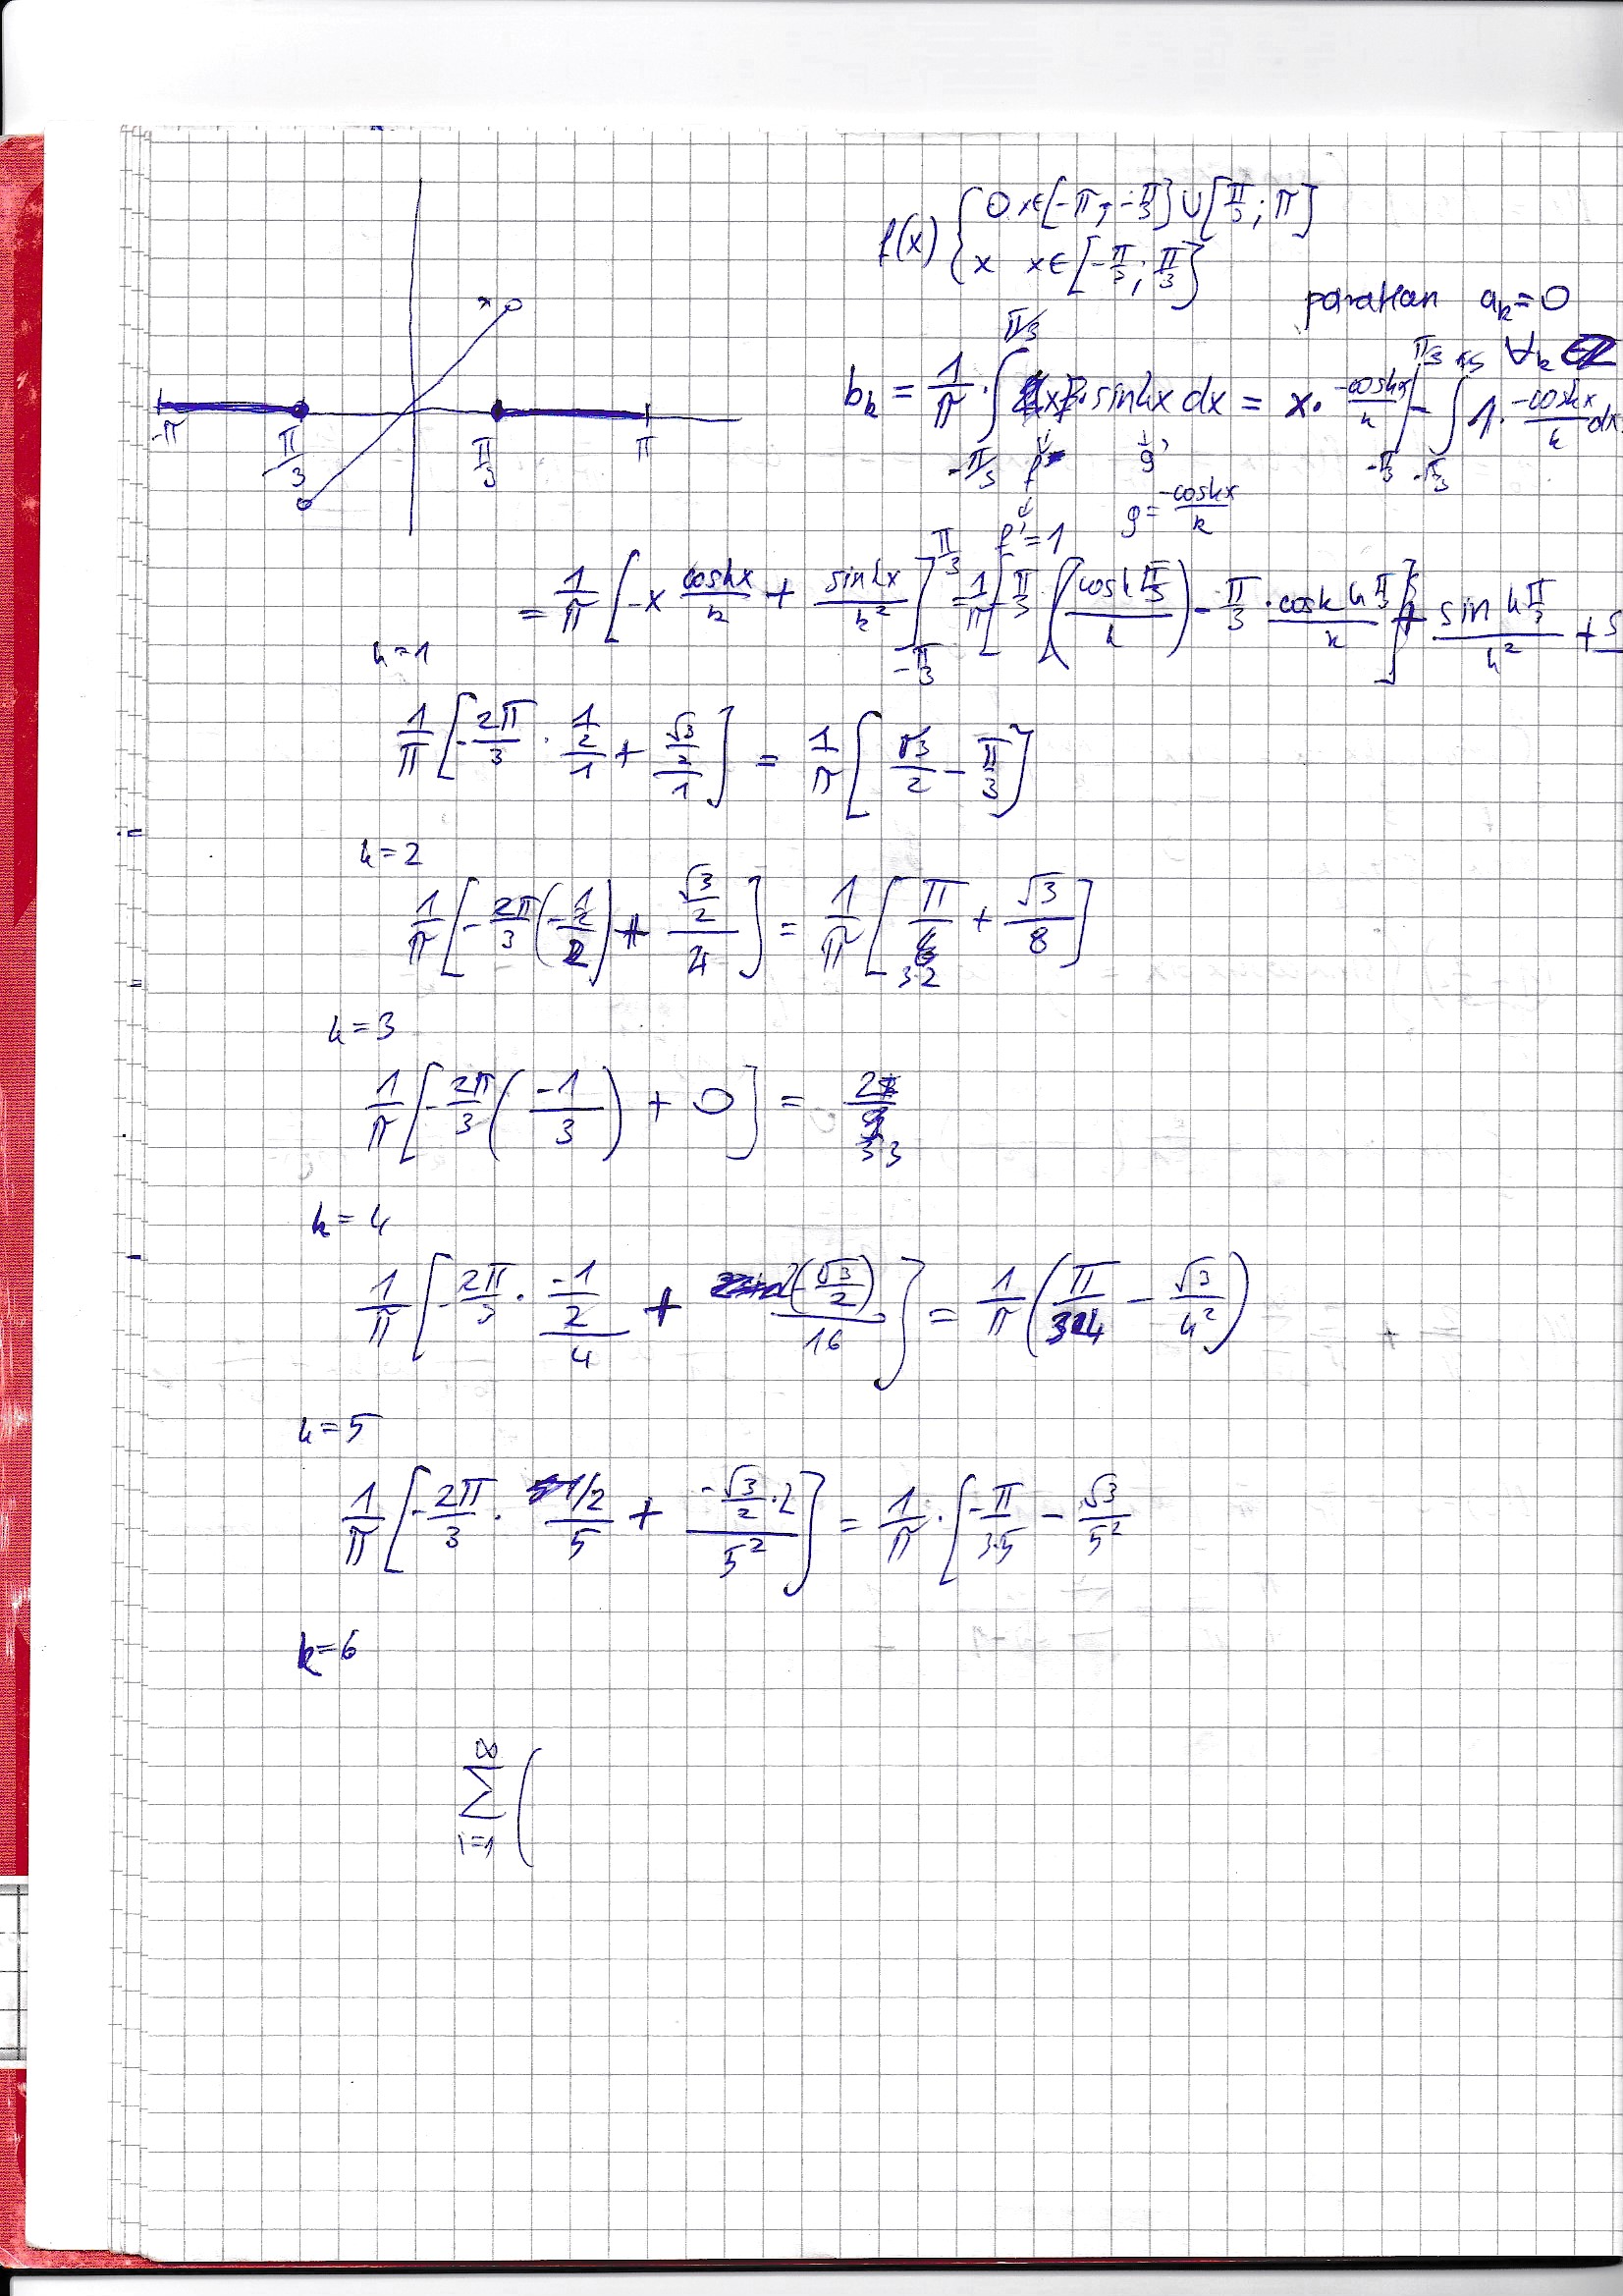 f(x) { 0 x∈[-π; -π/3] ∪ [π/3; π]
x x∈[-π/3; π/3]
páratlan a_k = 0
∀k
x
-π -π/3 π/3 π
b_k = 1/π · ∫_{-π/3}^{π/3} x · sin kx dx = x · (-cos kx)/k |_{-π/3}^{π/3} - ∫_{-π/3}^{π/3} 1 · (-cos kx)/k dx
f g'
f' = 1 g = (-cos kx)/k
= 1/π [ -x (cos kx)/k + (sin kx)/k² ]_{-π/3}^{π/3} = 1/π [ -π/3 · ( (cos k π/3)/k ) - π/3 · (cos k π/3)/k ] + (sin k π/3)/k² +
k=1
1/π [ -2π/3 · (1/2)/1 + (√3/2)/1 ] = 1/π [ √3/2 - π/3 ]
k=2
1/π [ -2π/3 ( -(1/2)/2 ) + (√3/2)/4 ] = 1/π [ π/(3·2) + √3/8 ]
k=3
1/π [ -2π/3 ( -1/3 ) + 0 ] = 2/(3·3)
k=4
1/π [ -2π/3 · (-1/2)/4 + 2(-√3/2)/16 ] = 1/π ( π/(3·4) - √3/4² )
k=5
1/π [ -2π/3 · (1/2)/5 + (-√3/2 · 2)/5² ] = 1/π · [ -π/(3·5) - √3/5²
k=6
∑_{i=1}^{∞} (